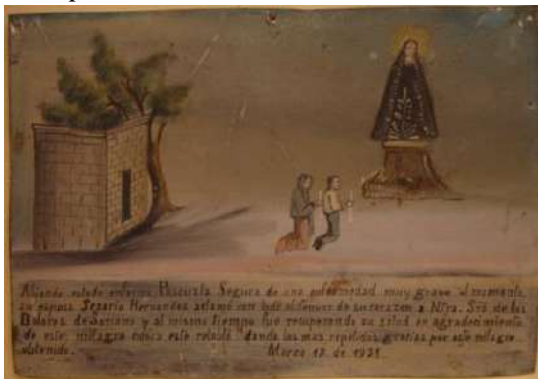 Abiendo estado enferma Pascuala Segura de una enfermedad muy grave
su esposo Sesario Hernandez aclamó con todo de su corazon a Ntra. Srã de los
Dolores de Soriano y al mismo tiempo fué recuperando su salud en agradecimiento
de este milagro este retablo dando las mas repetidas gracias por este milagro
obtenido. Marzo 17 de 1931.